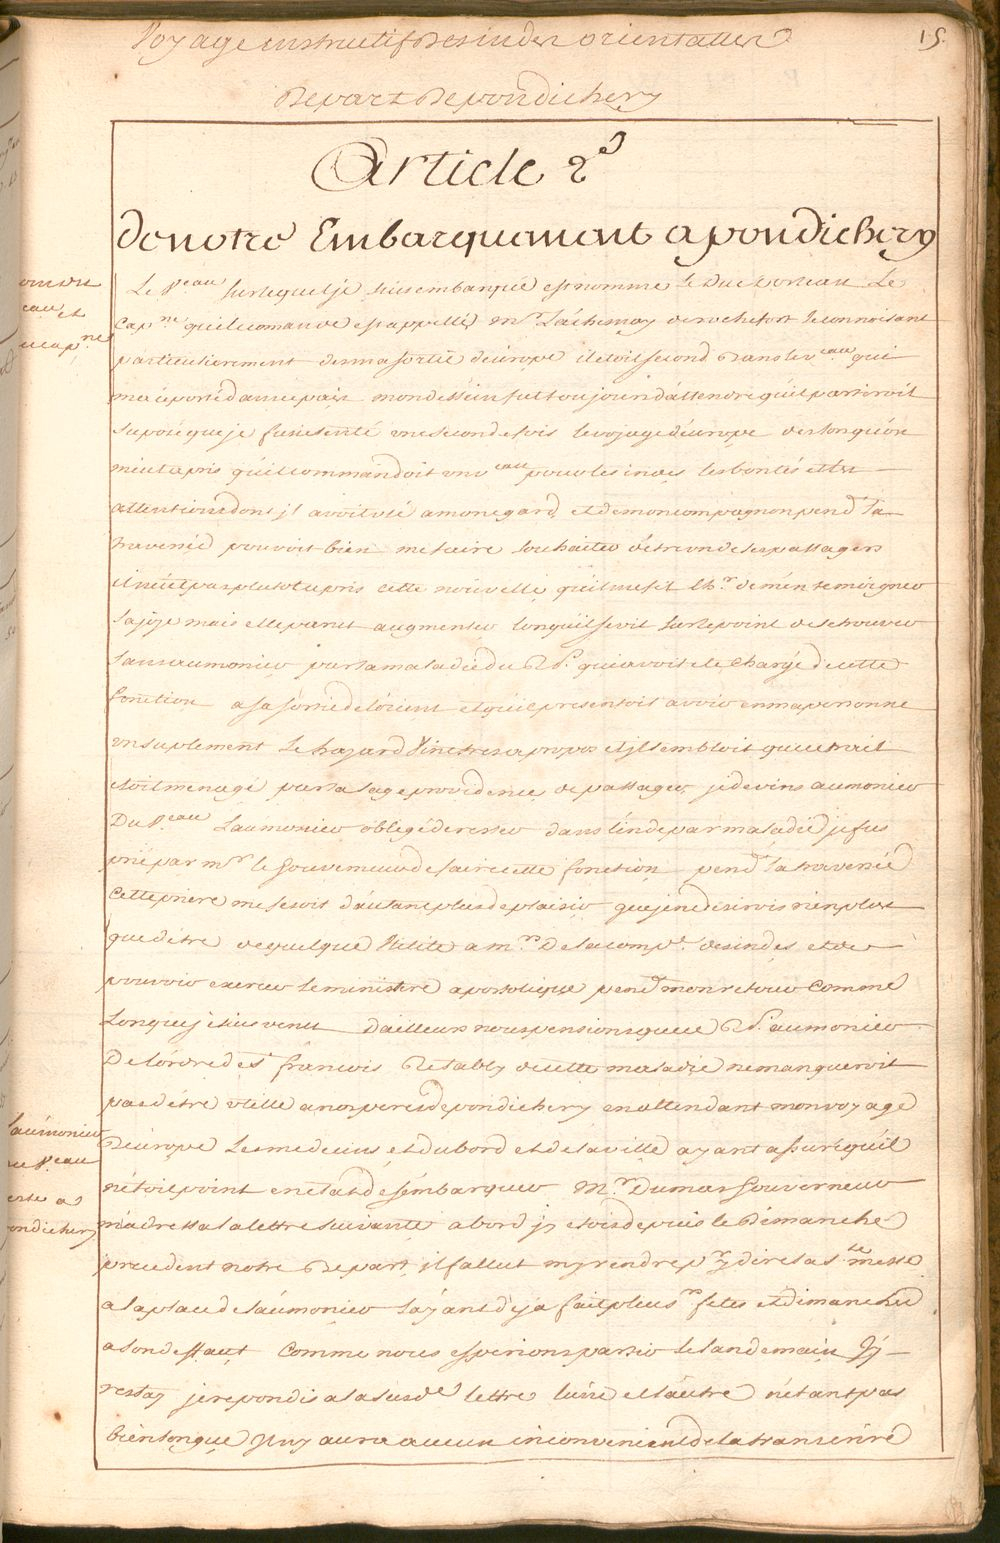 Voyage instructif Des indes orientalles
15.
Depart De pondichery
Article 2e
de notre Embarquement a pondichery
Le Veau sur lequel je suis embarqué est nommé le Duc d'orleans Le
Capne qui le comande est appellé Mr de rochefort le connoisant
particulierement de ma sortie d'europe il etoit second Dans le Veau qui
m'a porté dans ce païs mon dessein fut toujours d'attendre qu'il partiroit
suposé que je fusse tenté une seconde fois le voyage d'europe des lors qu'on
m'eut apris qu'il commandoit un Veau pour les indes les bontés et les
attentions dont jl avoit usé a mon egard, et de mon compagnon pendt la
traversée pouvoit bien me faire souhaiter d'etre un de ses passagers
il n'eut pas plutot apris cette nouvelle qu'il me fit lhr de m'en temoigner
sa joye mais elle parut augmenter lorsqu'il se vit sur le point de se trouver
sans aumonier par la maladie du R. P. qui avoit été chargé de cette
fonction a sa sortie de lorient et qu'il presentoit avoir en ma personne
un suplement le hazard vint tres a propos et jl sembloit que ce trait
etoit menagé par la sage providence de passager, je devins aumonier
Du Veau L'aumonier obligé de rester dans l'inde par maladie je fus
prié par mr le Gouverneur de faire cette fonction pendt la traversée
Cette priere me fesoit d'autant plus de plaisir que je ne desirois rien plus
que d'etre de quelque Utilité a mrs De la compe des indes et de
pouvoir exercer le ministere apostolique pendt mon retour comme
lorsque j'etois venu D'ailleurs nous pensions que ce R. P. aumonier
De l'ordre de st francois Retably de cette maladie ne manqueroit
pas d'etre utille a nos peres de pondichery en attendant mon voyage
D'europe Les medecins et du bord et de la ville ayant assuré qu'il
n'etoit point en etat de s'embarquer Mr Dumas Gouverneur
m'adressa la lettre suivante a bord jy etois depuis le Dimanche
precedent notre Depart, jl fallut m'y rendre pr y dire la ste messe
a la place de l'aumonier l'ayant deja fait plusrs fetes et dimanches
a son deffaut Comme nous esperions partir le landemain J'y
restay je repondis a la susde lettre l'une et l'autre n'etant pas
bien longue Jl n'y aura aucun inconvenient de la transcrire
eau et
capne
L'aumonier
du Veau
reste a
pondichery